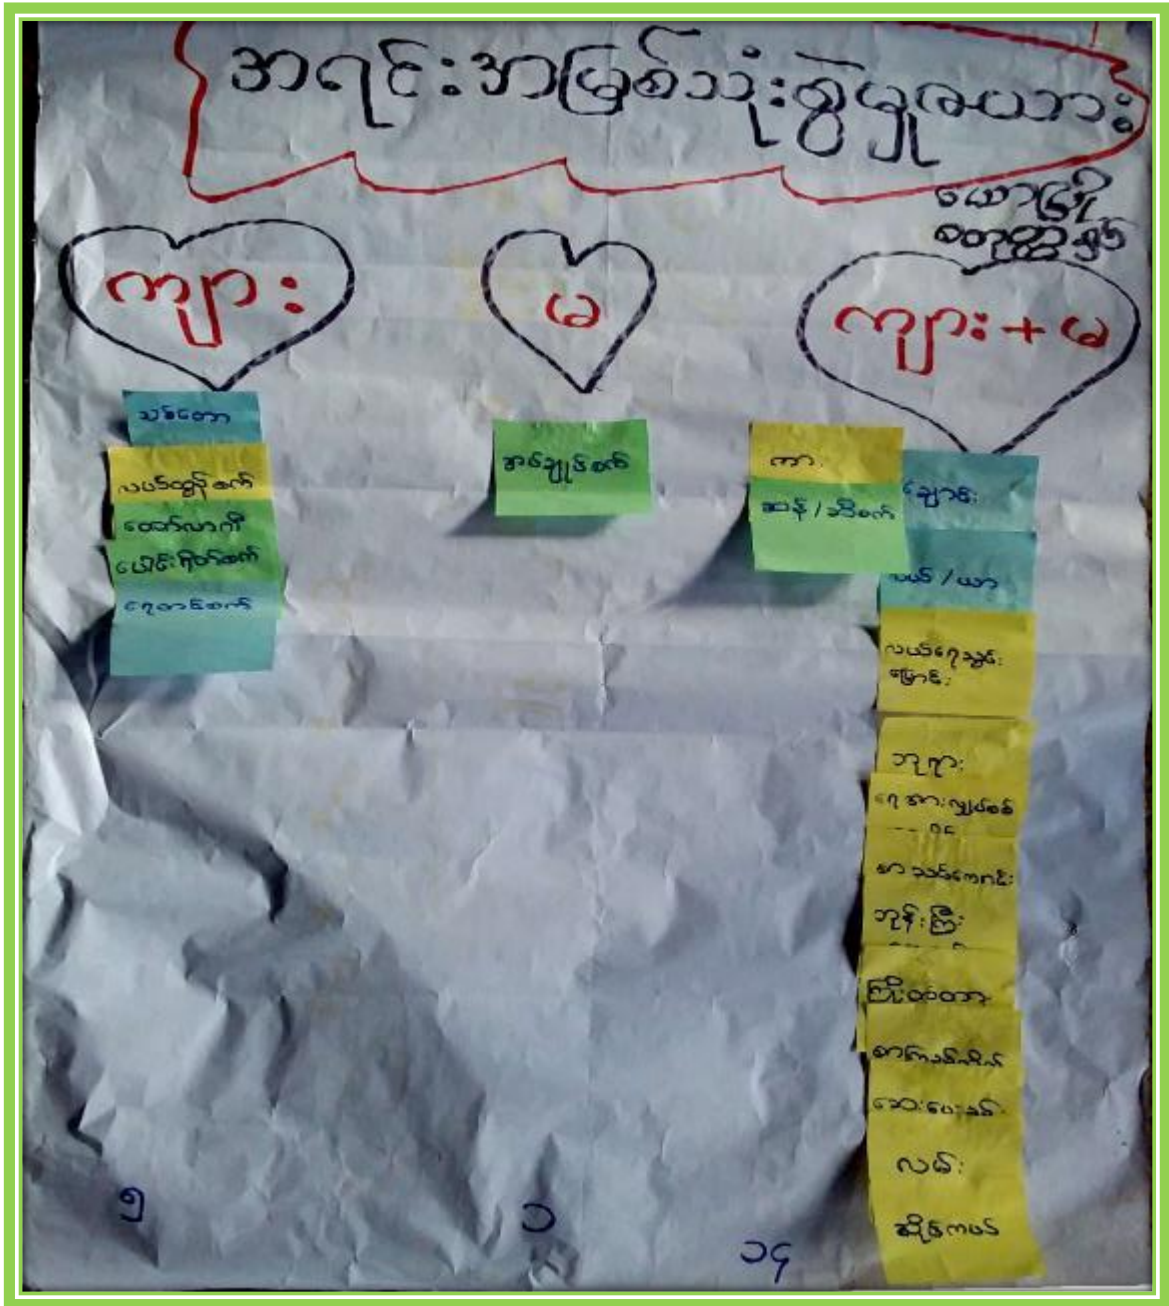 အရင်းအမြစ်သုံးစွဲမှုဇယား
ကျား
မ
ကျား+မ
သစ်တော
လယ်ထွန်စက်
ထော်လာဂျီ
ရေတင်စက်
အပ်ချုပ်စက်
ကား
ဆန်/ဆီစက်
ချောင်း
လယ်/ယာ
လယ်ရေသွင်း
မြောင်း
ဘုရား
ရေအားလျှပ်စစ်
စာသင်ကျောင်း
ဘုန်းကြီး
ကြိုးတံတား
စာကြည့်တိုက်
ဆေးပေးခန်း
လမ်း
ဆိုင်ကယ်
၅
၁
၁၄